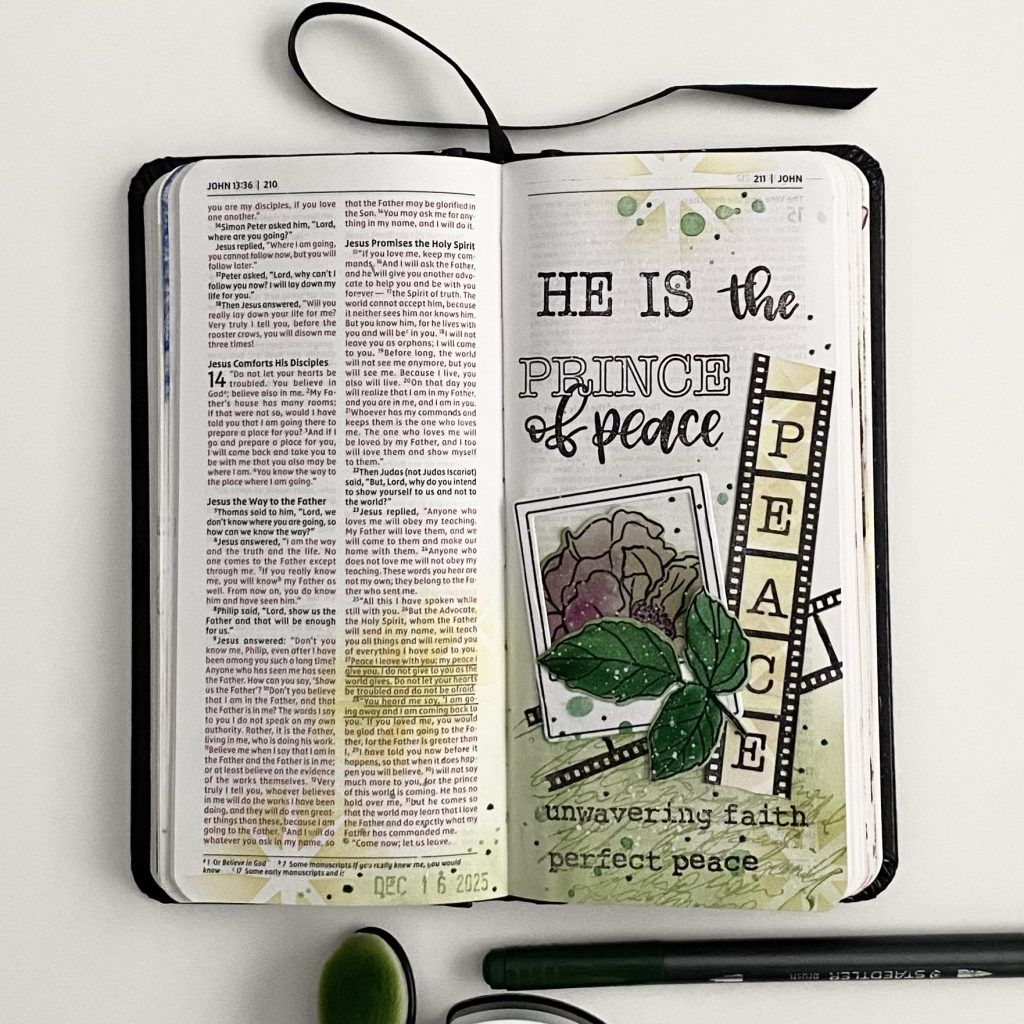 JOHN 13:36 | 210
you are my disciples, if you love
one another."
36Simon Peter asked him, "Lord,
where are you going?"
Jesus replied, "Where I am going,
you cannot follow now, but you will
follow later."
37Peter asked, "Lord, why can't I
follow you now? I will lay down my
life for you."
38Then Jesus answered, "Will you
really lay down your life for me?
Very truly I tell you, before the
rooster crows, you will disown me
three times!
Jesus Comforts His Disciples
14 "Do not let your hearts be
troubled. You believe in
God; believe also in me. 2My Fa-
ther's house has many rooms;
if that were not so, would I have
told you that I am going there to
prepare a place for you? 3And if I
go and prepare a place for you,
I will come back and take you to
be with me that you also may be
where I am. 4You know the way to
the place where I am going."
Jesus the Way to the Father
5Thomas said to him, "Lord, we
don't know where you are going, so
how can we know the way?"
6Jesus answered, "I am the way
and the truth and the life. No
one comes to the Father except
through me. 7If you really know
me, you will know my Father as
well. From now on, you do know
him and have seen him."
8Philip said, "Lord, show us the
Father and that will be enough
for us."
9Jesus answered: "Don't you
know me, Philip, even after I have
been among you such a long time?
Anyone who has seen me has seen
the Father. How can you say, 'Show
us the Father'? 10Don't you believe
that I am in the Father, and that
the Father is in me? The words I say
to you I do not speak on my own
authority. Rather, it is the Father,
living in me, who is doing his work.
11Believe me when I say that I am in
the Father and the Father is in me;
or at least believe on the evidence
of the works themselves. 12Very
truly I tell you, whoever believes
in me will do the works I have been
doing, and they will do even great-
er things than these, because I am
going to the Father. 13And I will do
whatever you ask in my name, so
that the Father may be glorified in
the Son. 14You may ask me for any-
thing in my name, and I will do it.
Jesus Promises the Holy Spirit
15"If you love me, keep my com-
mands. 16And I will ask the Father,
and he will give you another advo-
cate to help you and be with you
forever— 17the Spirit of truth. The
world cannot accept him, because
it neither sees him nor knows him.
But you know him, for he lives with
you and will be in you. 18I will not
leave you as orphans; I will come
to you. 19Before long, the world
will not see me anymore, but you
will see me. Because I live, you
also will live. 20On that day you
will realize that I am in my Father,
and you are in me, and I am in you.
21Whoever has my commands and
keeps them is the one who loves
me. The one who loves me will
be loved by my Father, and I too
will love them and show myself
to them."
22Then Judas (not Judas Iscariot)
said, "But, Lord, why do you intend
to show yourself to us and not to
the world?"
23Jesus replied, "Anyone who
loves me will obey my teaching.
My Father will love them, and we
will come to them and make our
home with them. 24Anyone who
does not love me will not obey my
teaching. These words you hear are
not my own; they belong to the Fa-
ther who sent me.
25"All this I have spoken while
still with you. 26But the Advocate,
the Holy Spirit, whom the Father
will send in my name, will teach
you all things and will remind you
of everything I have said to you.
27Peace I leave with you; my peace I
give you. I do not give to you as the
world gives. Do not let your hearts
be troubled and do not be afraid.
28"You heard me say, 'I am go-
ing away and I am coming back to
you.' If you loved me, you would
be glad that I am going to the Fa-
ther, for the Father is greater than
I. 29I have told you now before it
happens, so that when it does hap-
pen you will believe. 30I will not say
much more to you, for the prince
of this world is coming. He has no
hold over me, 31but he comes so
that the world may learn that I love
the Father and do exactly what my
Father has commanded me.
"Come now; let us leave.
1 Or Believe in God 7 Some manuscripts If you really knew me, you would
know 17 Some early manuscripts and is
DEC 16 2025
211 | JOHN
HE IS the
PRINCE
of peace
PEACE
unwavering faith
perfect peace
STAEDTLER
brush